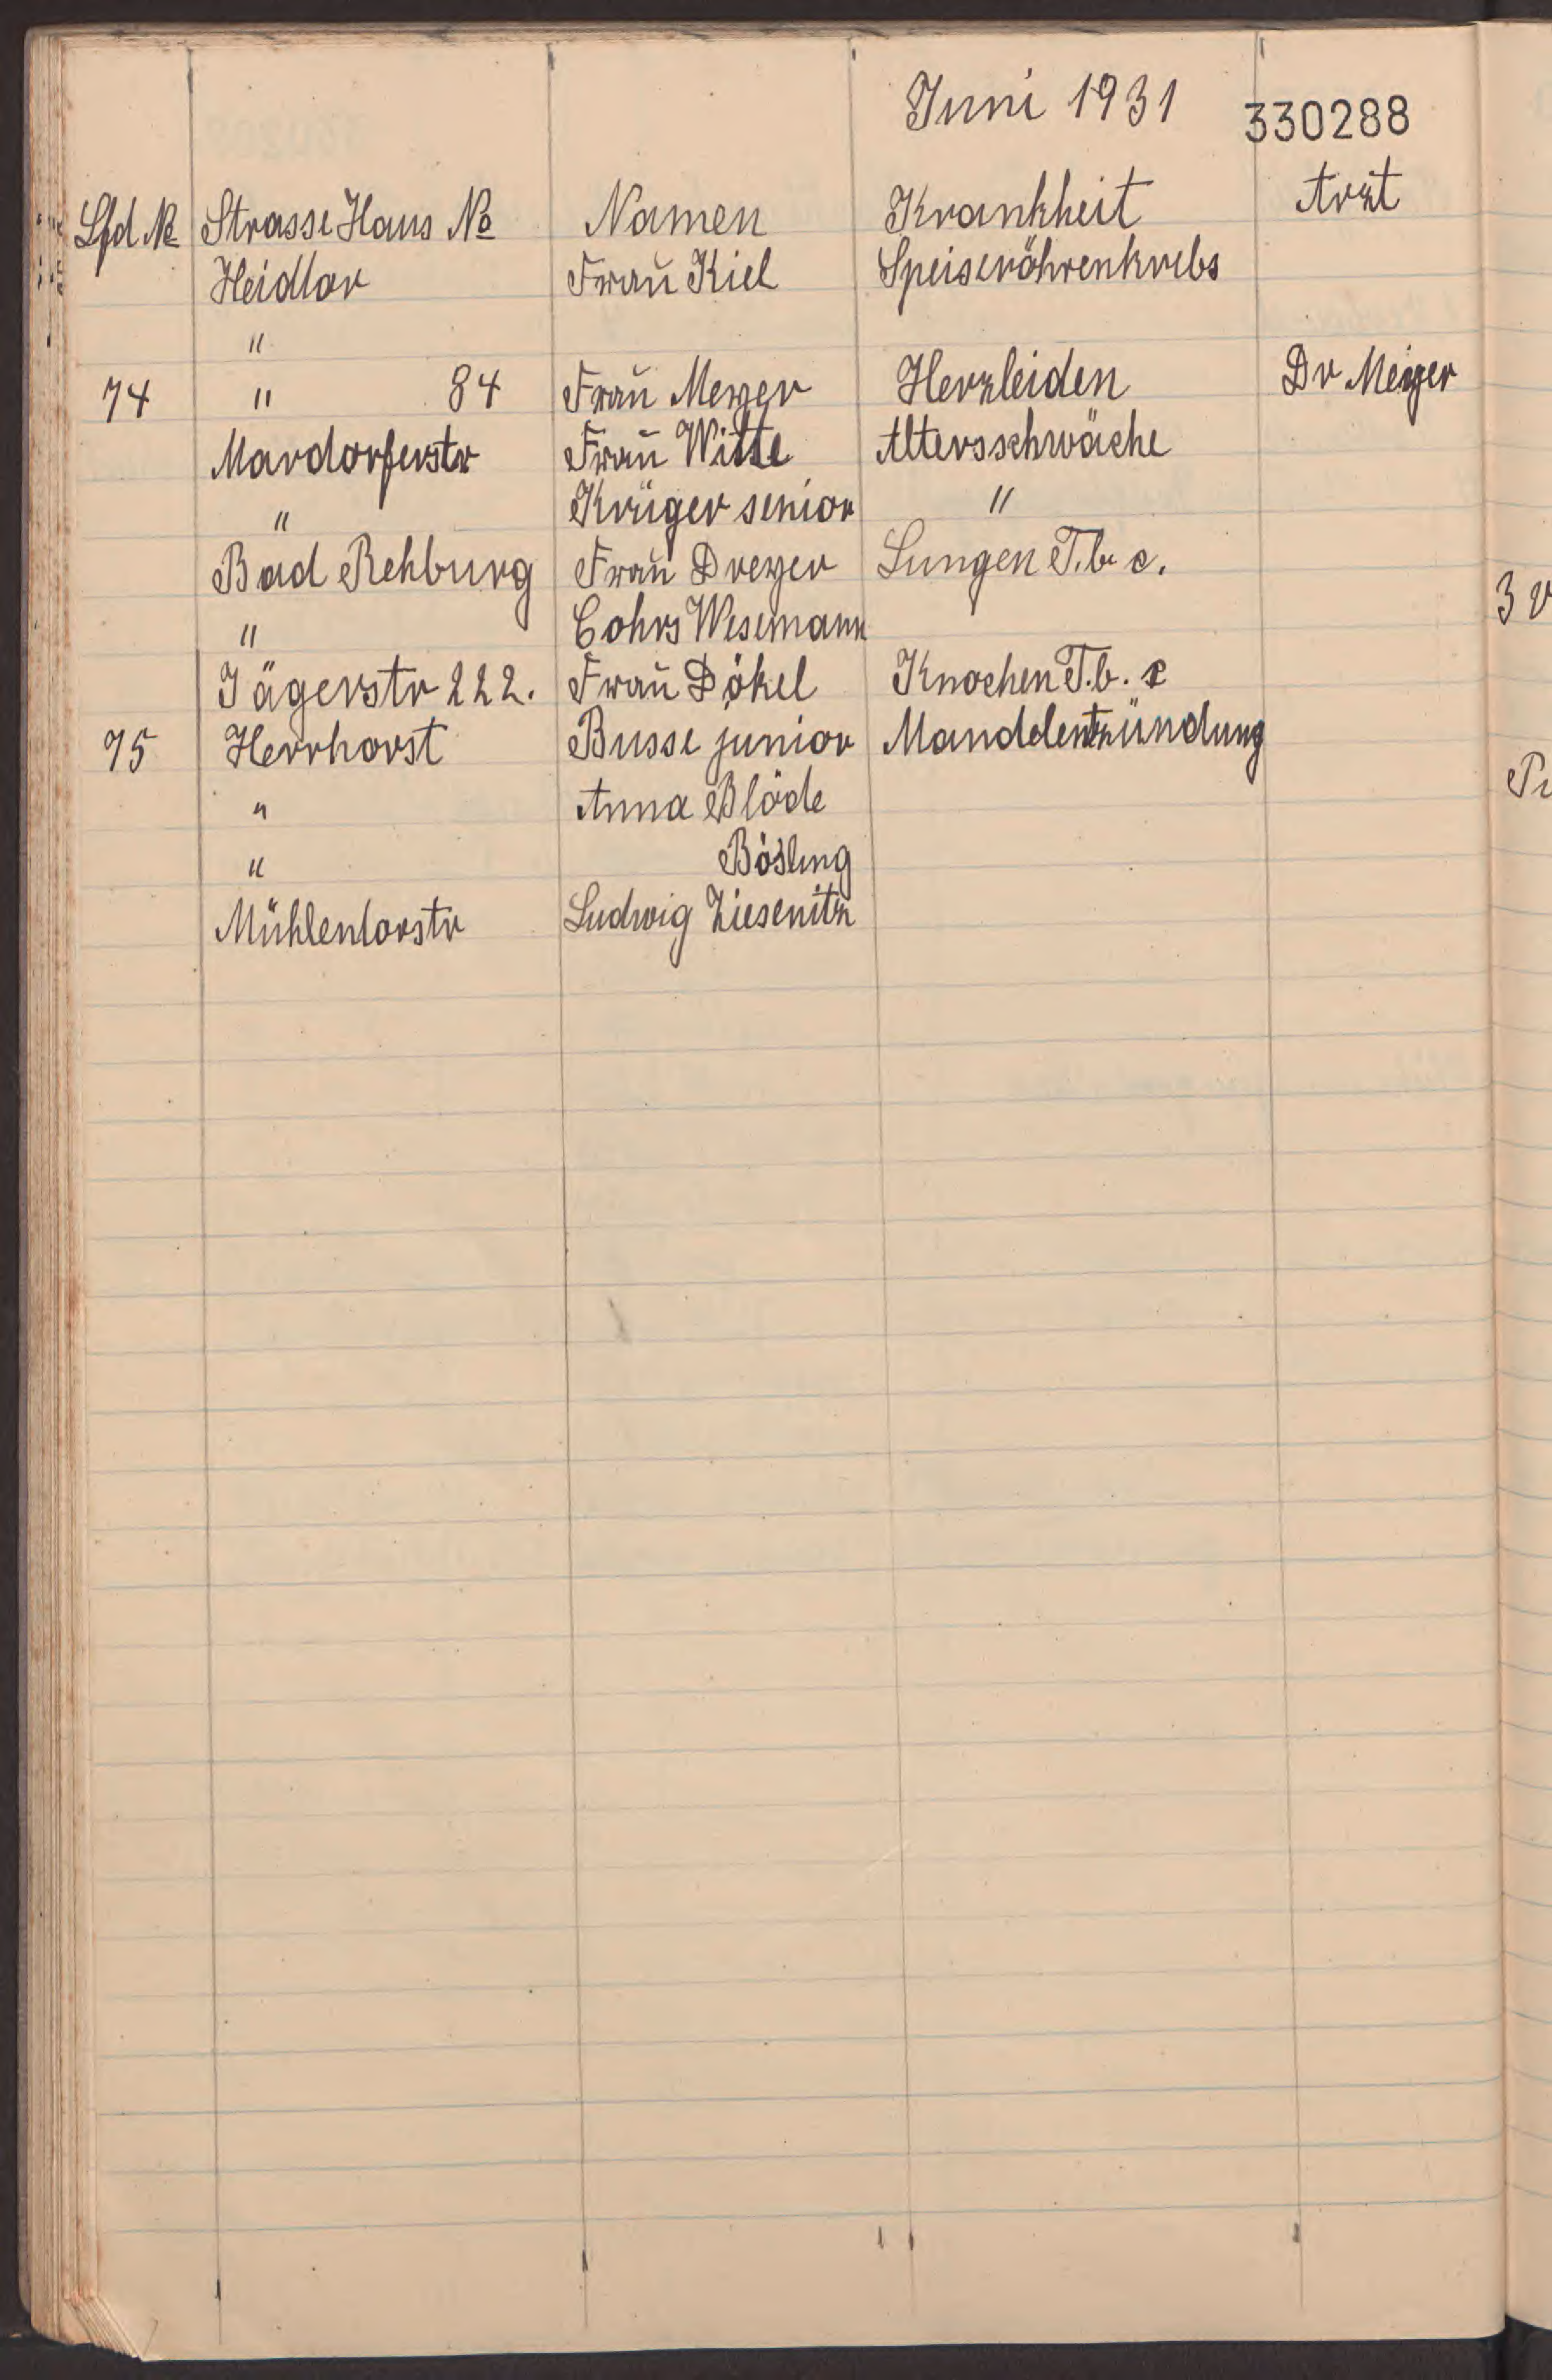 Juni 1931 330288
Lfd. No Strasse Haus No Namen Krankheit Arzt
Heidtor Frau Kiel Speiseröhrenkrebs
"
74 " 84 Frau Meyer Herzleiden Dr Meyer
Mardorferstr Frau Witte Altersschwäche
" Krüger senior "
Bad Rehburg Frau Dreyer Lungen T.b.c.
" Cohrs Wesemann
Jägerstr 222. Frau Dökel Knochen T.b.c
75 Herrhorst Busse junior Mandelentzündung
" Anna Blöde
" Bösling
Mühlentorstr Ludwig Ziesenitz
3